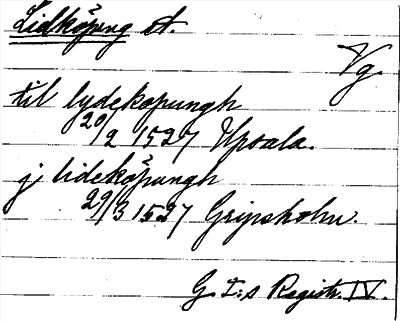 Lidköping st.
Vg.
til lydekopungh
20/2 1527 Upsala.
j lideköpungh
29/3 1527 Gripsholm.
G. I:s Registr. IV.